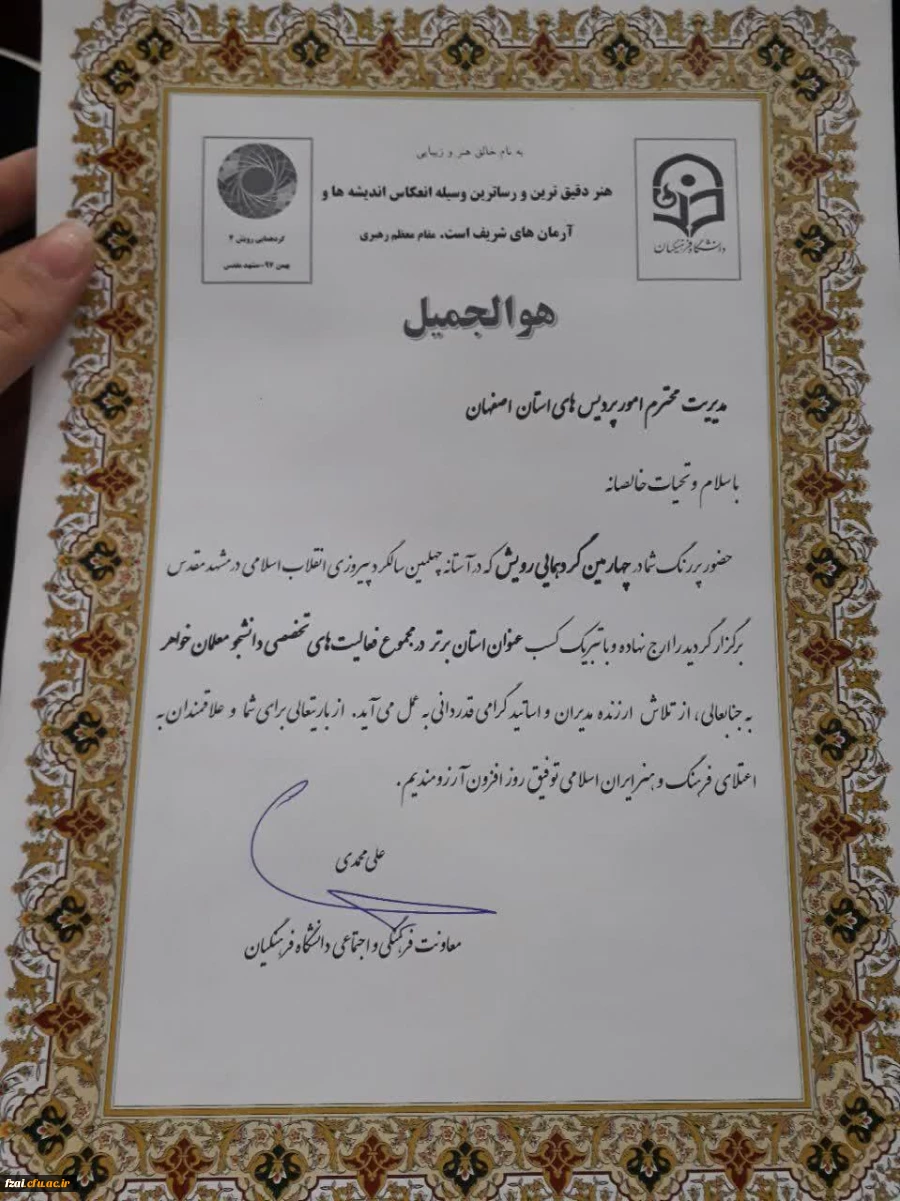 به نام خالق هنر و زیبایی
هنر دقیق ترین و رساترین وسیله انعکاس اندیشه ها و
آرمان های شریف است. مقام معظم رهبری
دانشگاه فرهنگیان
گردهمایی رویش ۴
بهمن ۹۷-مشهد مقدس
هوالجمیل
مدیریت محترم امور پردیس های استان اصفهان
با سلام و تحیات خالصانه
حضور پررنگ شما در چهارمین گردهمایی رویش که در آستانه چهلمین سالگرد پیروزی انقلاب اسلامی در مشهد مقدس
برگزار گردید را ارج نهاده و با تبریک کسب عنوان استان برتر در مجموع فعالیت های تخصصی دانشجو معلمان خواهر
به جنابعالی، از تلاش ارزنده مدیران و اساتید گرامی قدردانی به عمل می آید. از باریتعالی برای شما و علاقمندان به
اعتلای فرهنگ و هنر ایران اسلامی توفیق روز افزون آرزومندیم.
علی محمدی
معاونت فرهنگی و اجتماعی دانشگاه فرهنگیان
fzai.cfu.ac.ir